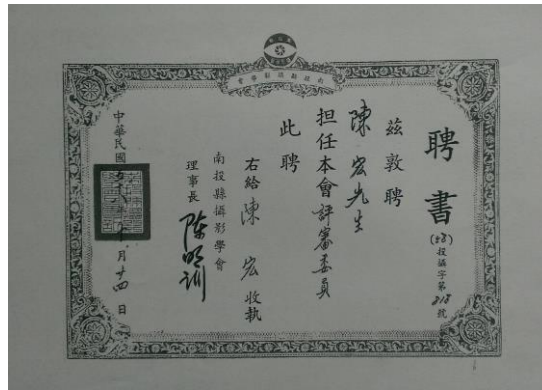 南投縣攝影學會
聘書
投攝字第218號
茲敦聘
陳宏先生
担任本會評審委員
此聘
右給陳宏收執
南投縣攝影學會
理事長 陈明訓
中華民國 年 月廿四日